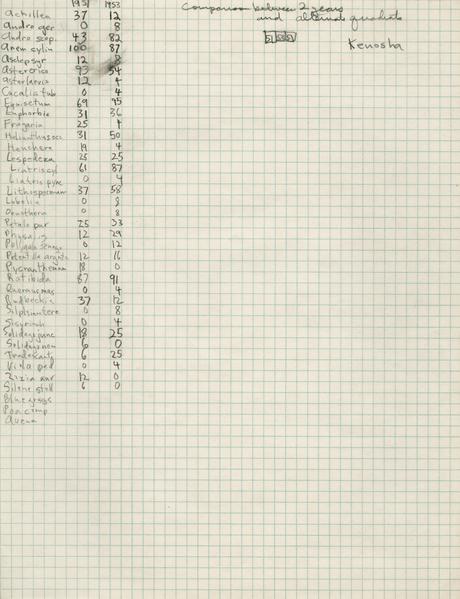 1951 1953
Comparison between 2 years
and alternate quadrats
Kenosha
Achillea 37 12
Andro ger 0 8
Andro scop. 43 82
Anem cylin 100 87
Asclepsyr 12 8
Aster eric 93 54
Aster laevis 12 4
Cacalia tub 0 4
Equisetum 69 95
Euphorbia 31 36
Fragaria 25 4
31 50
Heuchera 19 4
Lespedeza 25 25
Liatris cyl 61 87
Liatris pyc 0 4
Lithospermum 37 58
Lobelia 0 8
Oenothera 0 8
Petalo pur 25 33
Physalis 12 29
Polygala senega 0 12
Potentilla arguta 12 16
Pycnanthemum 18 0
Ratibida 87 91
Quercus mac 0 4
Rudbeckia 37 12
Silphium tere 0 8
Sisyrinch 0 4
Solidago junc 18 25
Solidago nem 6 0
Tradescanti 6 25
Viola ped 0 4
Zizia aur 12 0
Silene stell 6 0
Blue grass
Poa comp
Avena